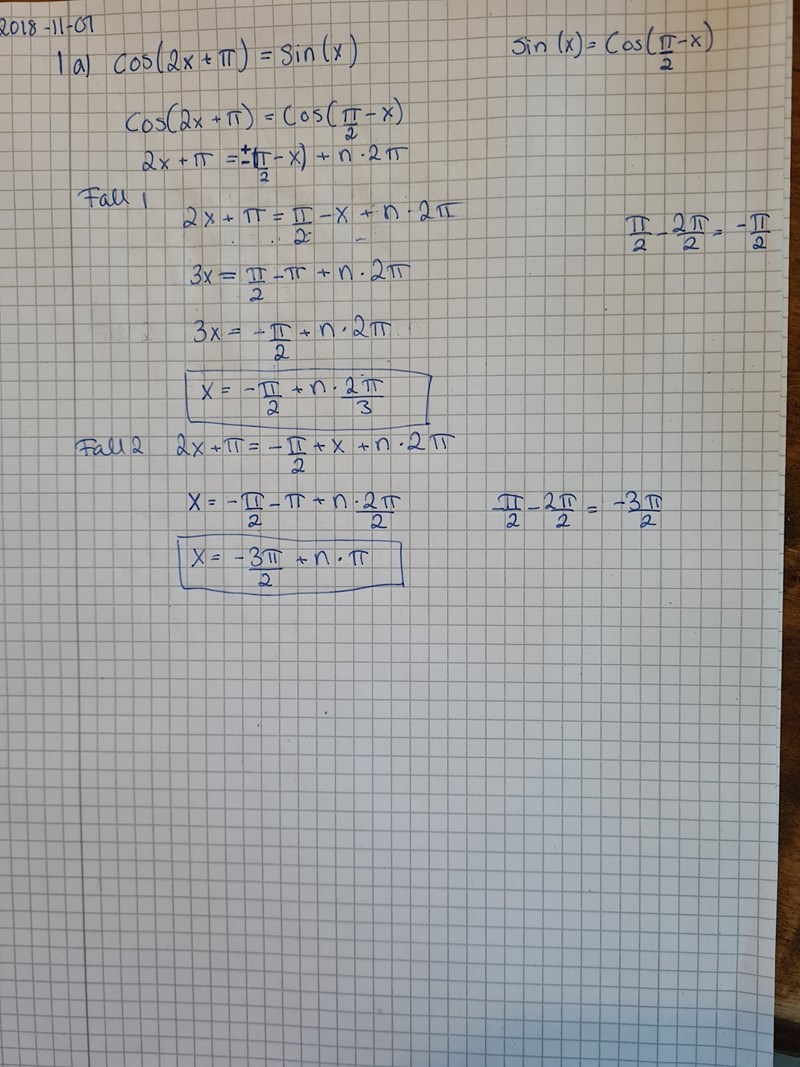 2018-11-01
1a) Cos(2x+π) = Sin(x)
Sin(x) = Cos(π/2 - x)
Cos(2x+π) = Cos(π/2 - x)
2x+π = ±(π/2 - x) + n·2π
Fall 1
2x + π = π/2 - x + n·2π
π/2 - 2π/2 = -π/2
3x = π/2 - π + n·2π
3x = -π/2 + n·2π
x = -π/2 + n·2π/3
Fall 2 2x+π = -π/2 + x + n·2π
x = -π/2 - π + n·2π/2
-π/2 - 2π/2 = -3π/2
x = -3π/2 + n·π